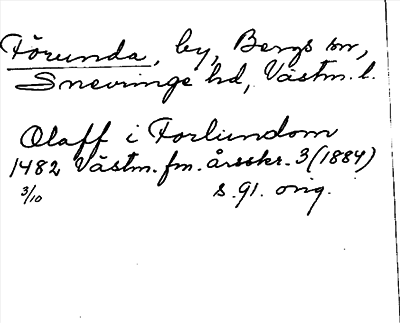 Förunda, by, Bergs sn,
Snevringe hd, Västm. l.
Olaff i Forlundom
1482 Västm. fm. årsskr. 3 (1884)
3/10 s. 91. orig.